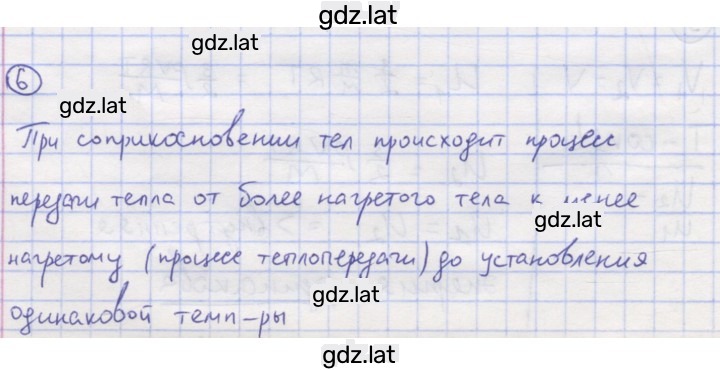 gdz.lat
gdz.lat
6
gdz.lat
При соприкосновении тел происходит процесс
передачи тепла от более нагретого тела к менее
gdz.lat
нагретому (процесс теплопередачи) до установления
gdz.lat
одинаковой темп-ры
gdz.lat